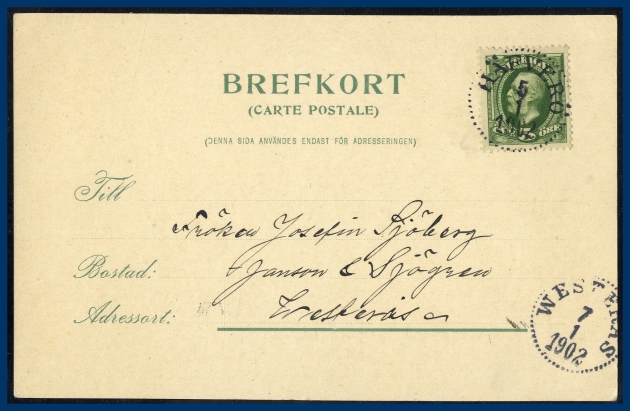 BREFKORT
(CARTE POSTALE)
(DENNA SIDA ANVÄNDES ENDAST FÖR ADRESSERINGEN)
5
1
1902
5 ÖRE
Till
Fröken Josefin Sjöberg
Bostad: Janson & Sjögren
Adressort: Westerås
WESTERÅS
7
1
1902